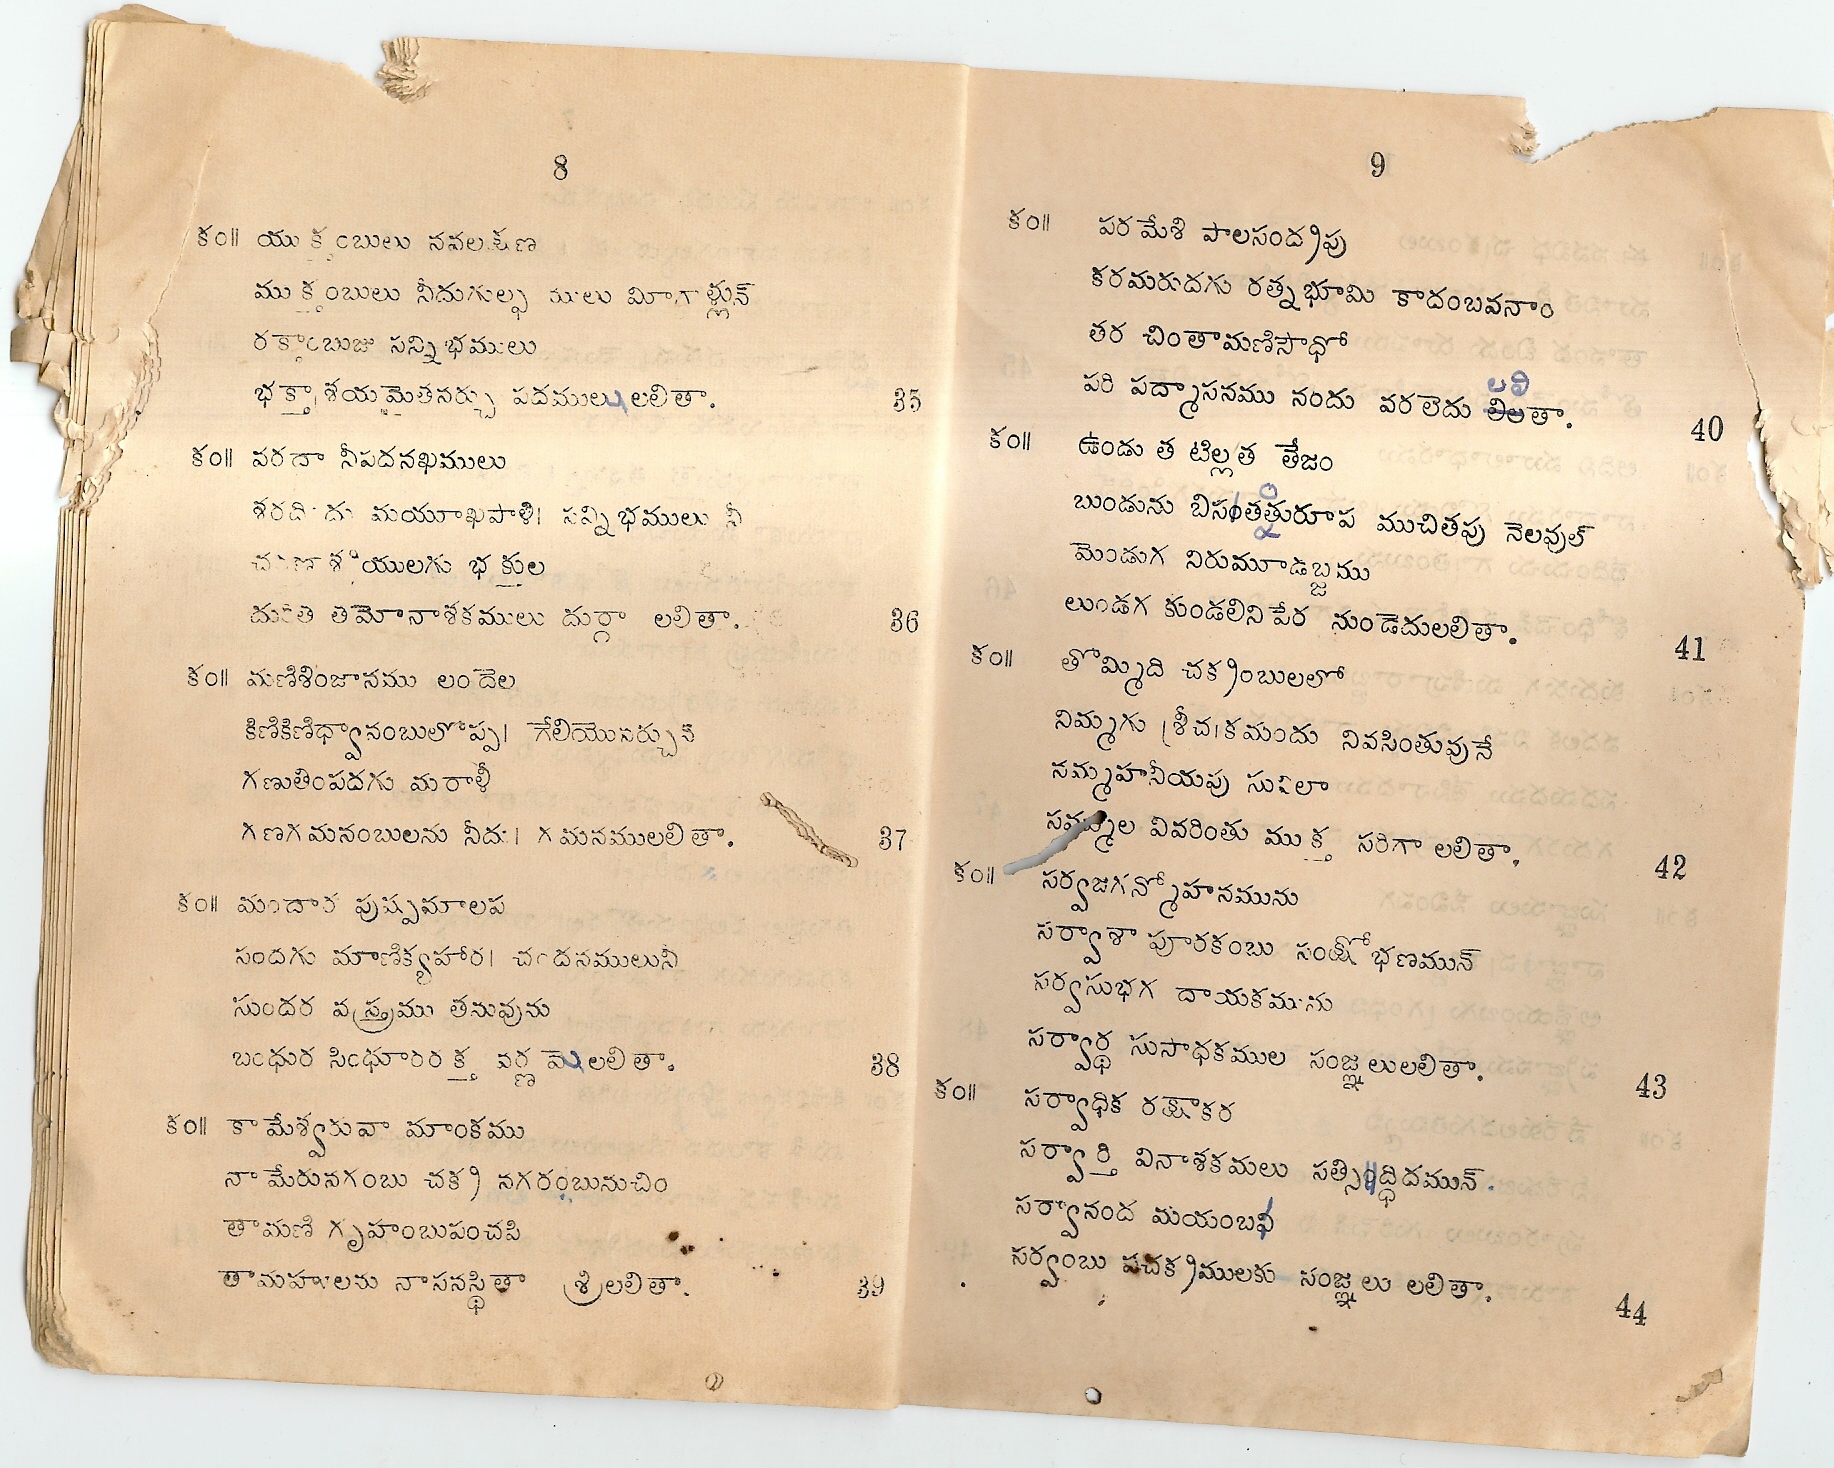 8
కం॥ యుక్తంబులు నవలక్షణ
ముక్తంబులు నీదుగుల్ఫ
రక్తాంబుజు సన్నిభములు
భక్తాశయమైతనర్చు పదములు లలితా. 35
కం॥ వరదా నీపదనఖములు
మయూఖపాళి। సన్నిభములు నీ
భక్తుల
తమోనాశకములు దుర్గా లలితా. 36
కం॥ మణిశింజానము లందెల
కిణికిణిధ్వానంబులొప్ప। గేలియొనర్చున
గణుతింపదగు మరాళీ
గణగమనంబులను నీదు। గమనములలితా. 37
కం॥ మందార పుష్పమాలప
సందగు మాణిక్యహార। చందనములునీ
సుందర వస్త్రము తనువును
బంధుర సింధూరరక్త వర్ణ మె లలితా. 38
కం॥ కామేశ్వరువా మాంకము
నా మేరునగంబు చక్ర నగరంబునుచిం
తామణి గృహంబుపంచపి
నాసనస్థితా శ్రీలలితా. 39
9
కం॥ పరమేశి పాలసంద్రపు
కరమరుదగు రత్నభూమి కాదంబవనాం
తర చింతామణిసౌధో
పరి పద్మాసనము నందు వరలెదు లలితా. 40
కం॥ ఉండు త టిల్లత తేజం
బుండును రూప ముచితపు నెలవుల్
మెండుగ నిరుమూడబ్జము
లుండగ కుండలినిపేర నుండెదులలితా. 41
కం॥ తొమ్మిది చక్రంబులలో
నిమ్మగు శ్రీచక్రమందు నివసింతువునే
నమ్మహనీయపు
వివరింతు ముక్త సరిగా లలితా. 42
కం॥ సర్వజగన్మోహనమును
సర్వాశా పూరకంబు సంక్షోభణమున్
సర్వసుభగ దాయకమును
సర్వార్థ సుసాధకముల సంజ్ఞలులలితా. 43
కం॥ సర్వాధిక రక్షాకర
సర్వార్తి వినాశకమలు సత్సిద్ధిదమున్.
సర్వానంద మయంబని
సర్వంబు పచక్రములకు సంజ్ఞలు లలితా. 44